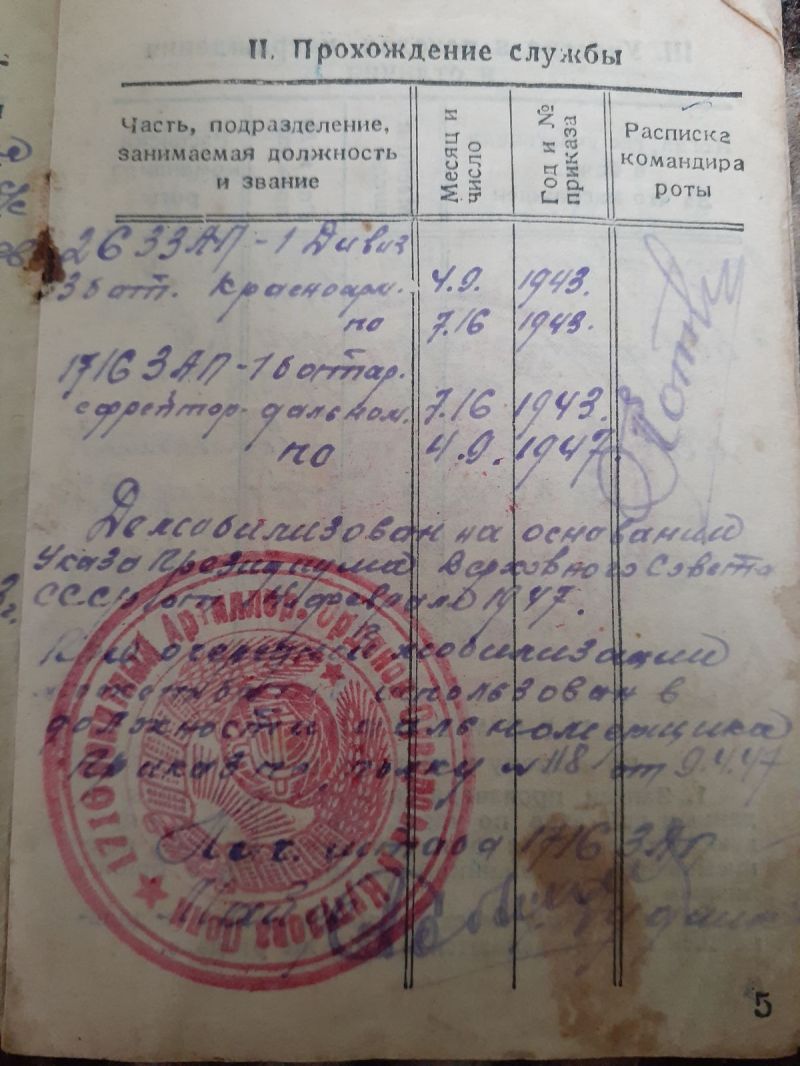 II. Прохождение службы
Часть, подразделение,
занимаемая должность
и звание
Месяц и
число
Год и №
приказа
Расписка
командира
роты
2633АП-1 Дивиз
3 бат. Красноарм. 4.9. 1943.
по 7.16 1943.
1716 ЗАП-1 баттар.
ефрейтор-дальном. 7.16 1943.
по 4.9. 1947.
Демобилизован на основании
Указа Президиума Верховного Совета
СССР от февраля 1947.
При очередной мобилизации
может быть использован в
должности дальномерщика
Приказ по полку № 118 от 9.4.47
Нач. штаба 1716 ЗАП
Майор
1716 Зенитный Артиллер. Ордена Кутузова Полк
5